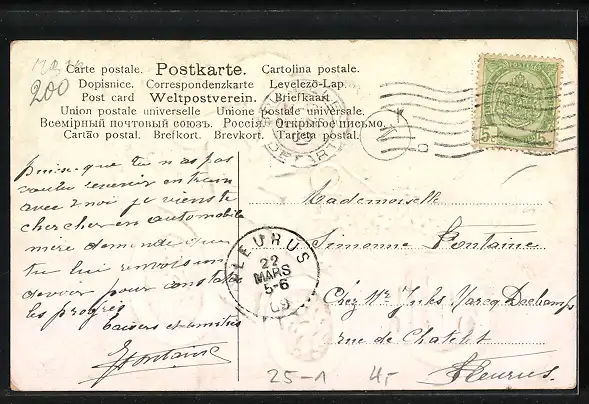 200
Carte postale. Postkarte. Cartolina postale.
Dopisnice. Correspondenzkarte Levelezö-Lap.
Post card Weltpostverein. Briefkaart
Union postale universelle Unione postale universale.
Всемірный почтовый союзъ. Россія. Открытое письмо.
Cartão postal. Brefkort. Brevkort. Tarjeta postal.
DEPART
puisque tu n'as pas
voulu revenir en train
avec moi je viens te
chercher en automobile
mère demande que
tu lui
devoir pour constater
les progrès
baisers et amitiés
Fontaine
FLEURUS
22
MARS
5-6
09
Mademoiselle
Simonne Fontaine
Chez Mr Jules Decamps
rue de Chatelet
Fleurus
25-1 4,-